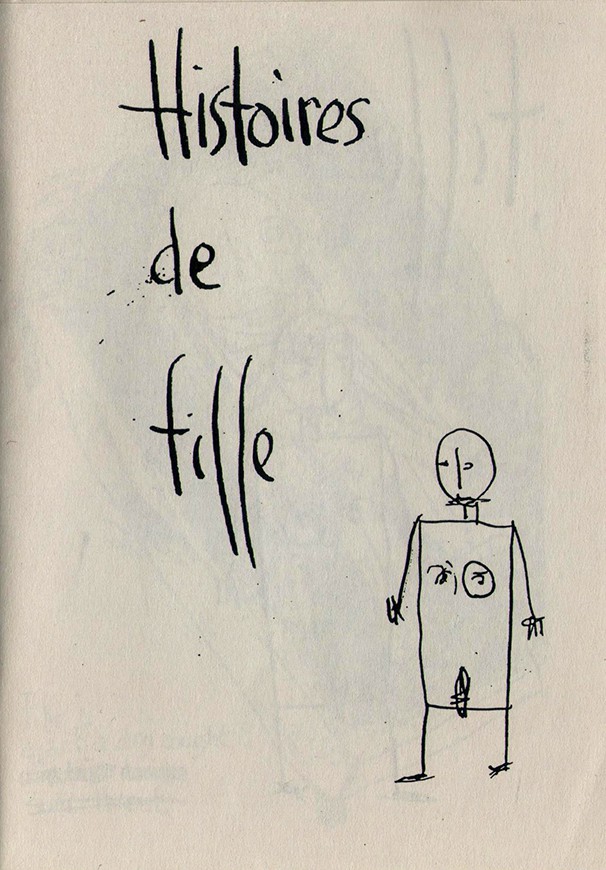 Histoires
de
fille